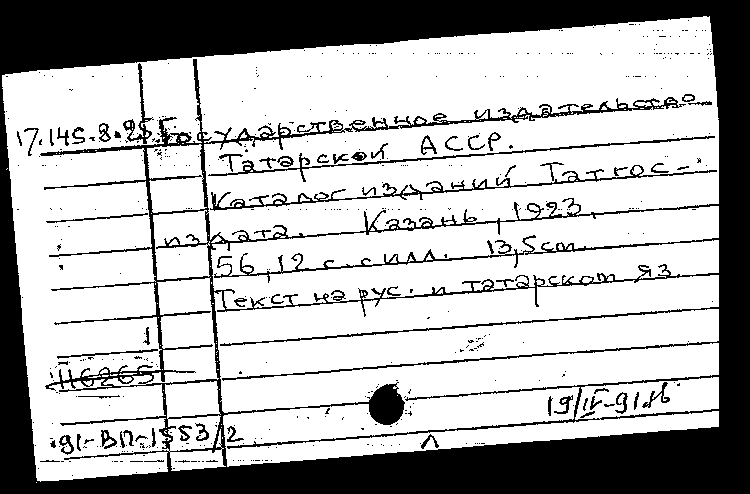 17.145.8.25 Государственное издательство
Татарской АССР.
Каталог изданий Татгос-
издата. Казань, 1923.
56, 12 с. с илл. 13,5 см.
Текст на рус. и татарском яз.
1
116265
19/IV-91.
91-ВП-1553/2